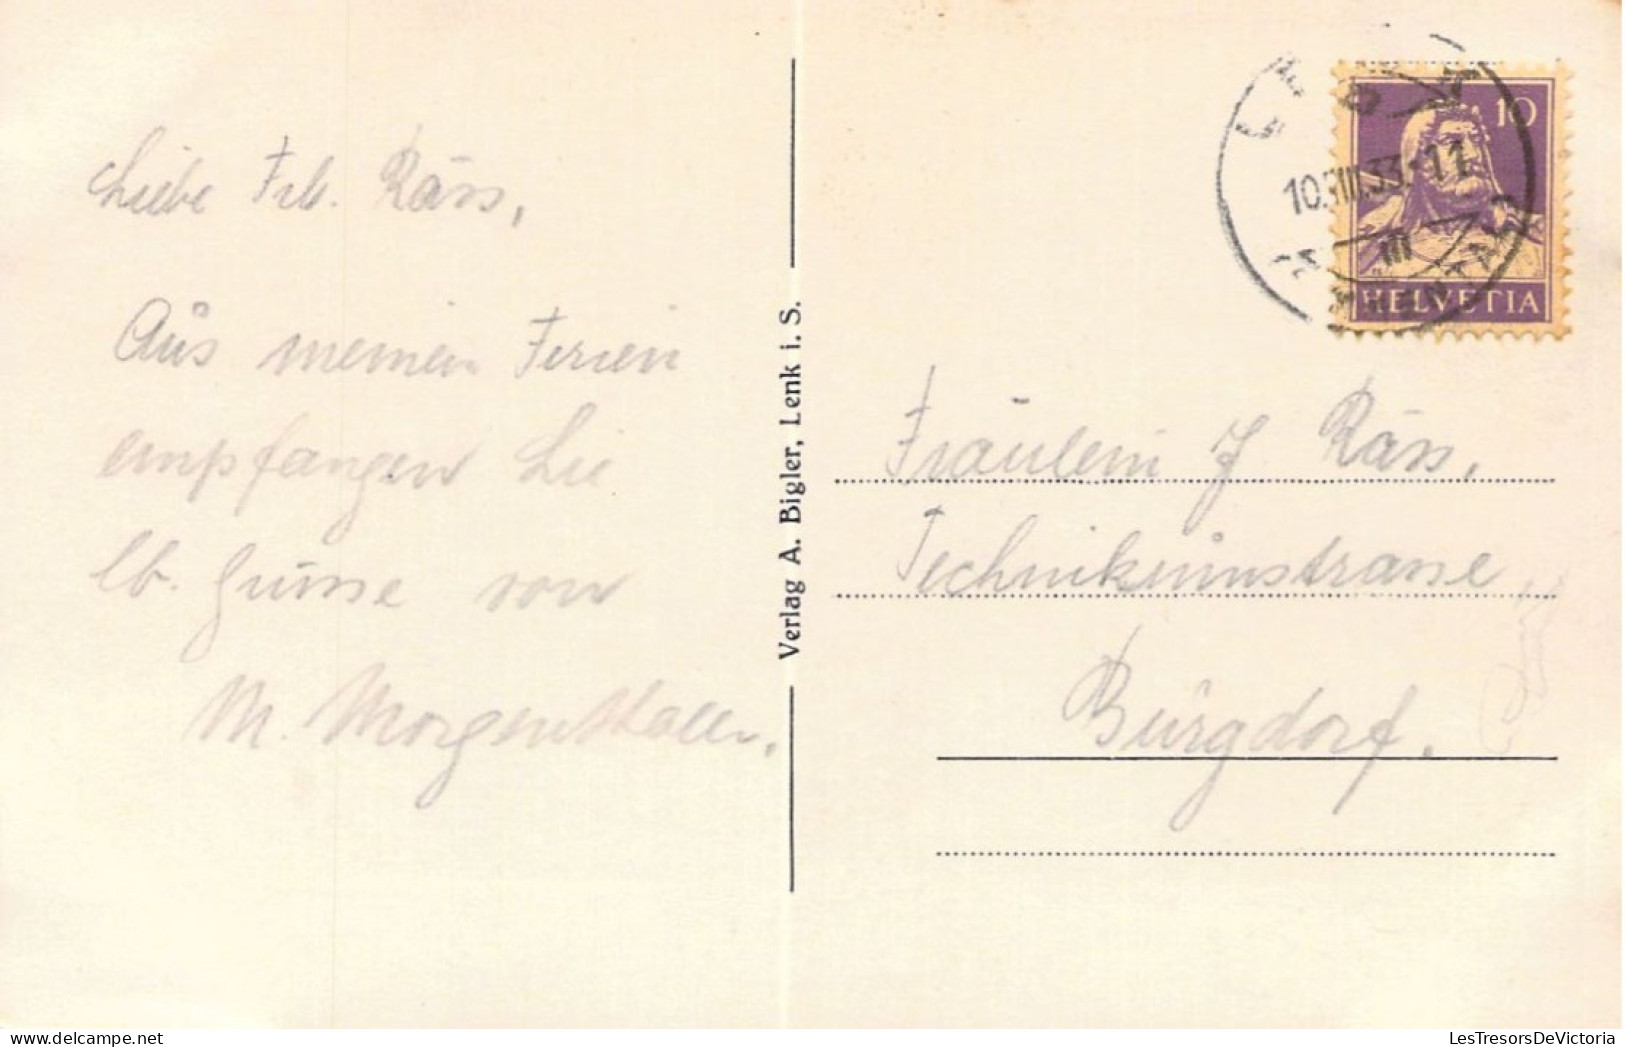 Liebe Frl. Räss,
Aus meinen Ferien
empfangen Sie
lb. Grüsse von
M. Morgenthaler.
Verlag A. Bigler, Lenk i. S.
10
10.VIII.33.-11
III
HELVETIA
LENK
(SIMMENTAL)
Fräulein J Räss,
Technikumstrasse
Burgdorf.
LesTresorsDeVictoria